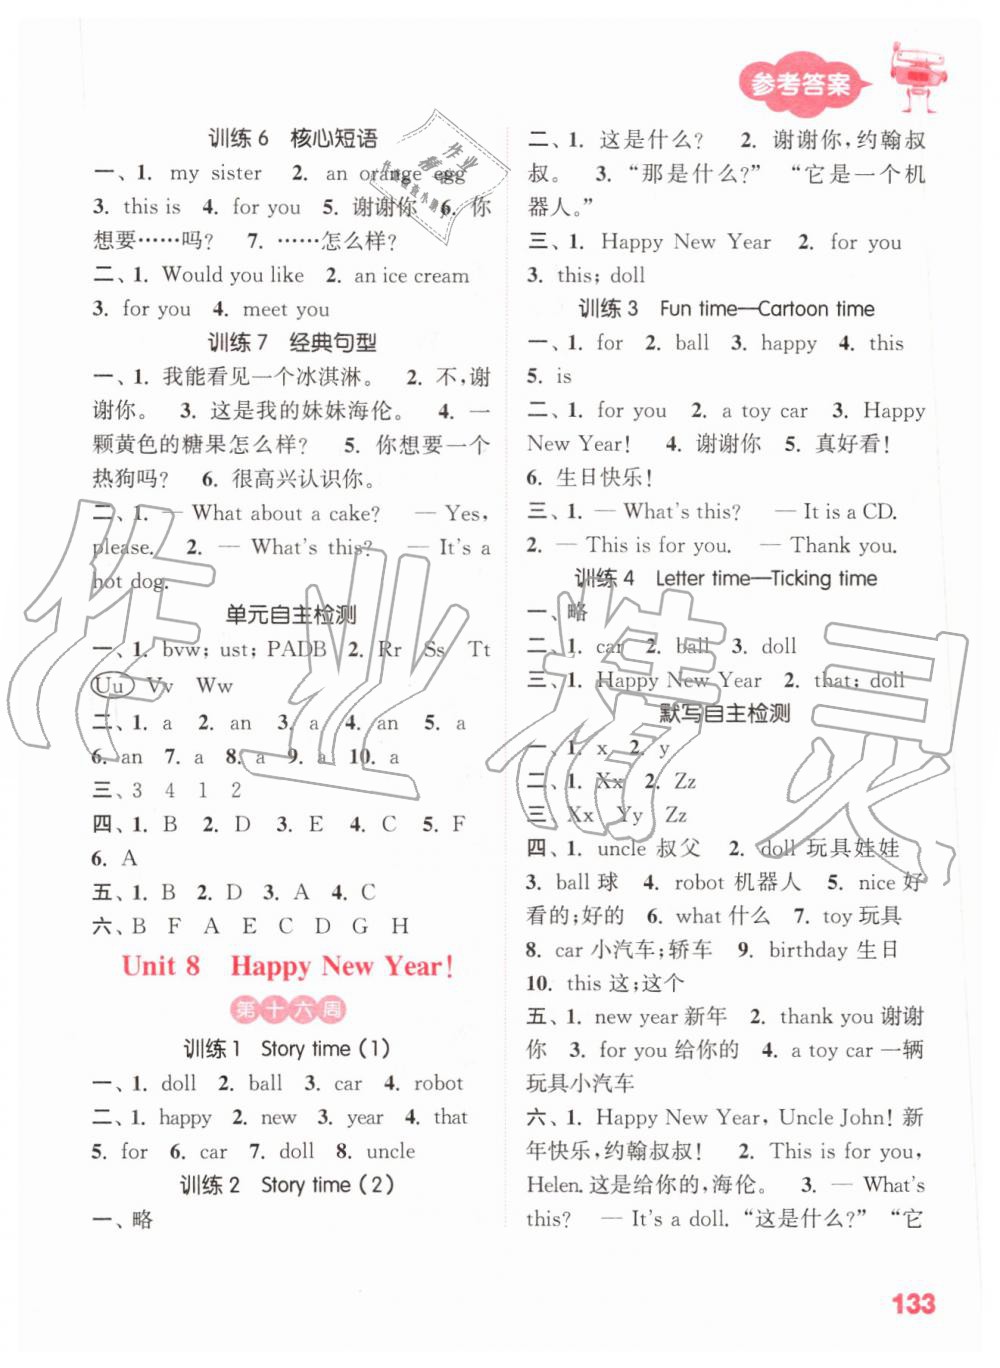 参考答案
训练6 核心短语
一、1. my sister 2. an orange egg
3. this is 4. for you 5. 谢谢你 6. 你
想要……吗? 7. ……怎么样?
二、1. Would you like 2. an ice cream
3. for you 4. meet you
训练7 经典句型
一、1. 我能看见一个冰淇淋。 2. 不,谢
谢你。 3. 这是我的妹妹海伦。 4. 一
颗黄色的糖果怎么样? 5. 你想要一个
热狗吗? 6. 很高兴认识你。
二、1. — What about a cake? — Yes,
please. 2. — What's this? — It's a
hot dog.
单元自主检测
一、1. bvw; ust; PADB 2. Rr Ss Tt
Uu Vv Ww
二、1. a 2. an 3. a 4. an 5. a
6. an 7. a 8. a 9. a 10. a
三、3 4 1 2
四、1. B 2. D 3. E 4. C 5. F
6. A
五、1. B 2. D 3. A 4. C
六、B F A E C D G H
Unit 8 Happy New Year!
第十六周
训练1 Story time (1)
一、1. doll 2. ball 3. car 4. robot
二、1. happy 2. new 3. year 4. that
5. for 6. car 7. doll 8. uncle
训练2 Story time (2)
一、略
二、1. 这是什么? 2. 谢谢你,约翰叔
叔。 3. “那是什么?” “它是一个机
器人。”
三、1. Happy New Year 2. for you
3. this; doll
训练3 Fun time—Cartoon time
一、1. for 2. ball 3. happy 4. this
5. is
二、1. for you 2. a toy car 3. Happy
New Year! 4. 谢谢你 5. 真好看!
6. 生日快乐!
三、1. — What's this? — It is a CD.
2. — This is for you. — Thank you.
训练4 Letter time—Ticking time
一、略
二、1. car 2. ball 3. doll
三、1. Happy New Year 2. that; doll
默写自主检测
一、1. x 2. y
二、1. Xx 2. Zz
三、Xx Yy Zz
四、1. uncle 叔父 2. doll 玩具娃娃
3. ball 球 4. robot 机器人 5. nice 好
看的;好的 6. what 什么 7. toy 玩具
8. car 小汽车;轿车 9. birthday 生日
10. this 这;这个
五、1. new year 新年 2. thank you 谢谢
你 3. for you 给你的 4. a toy car 一辆
玩具小汽车
六、1. Happy New Year, Uncle John! 新
年快乐,约翰叔叔! 2. This is for you,
Helen. 这是给你的,海伦。 3. — What's
this? — It's a doll. “这是什么?” “它
133
作业精灵